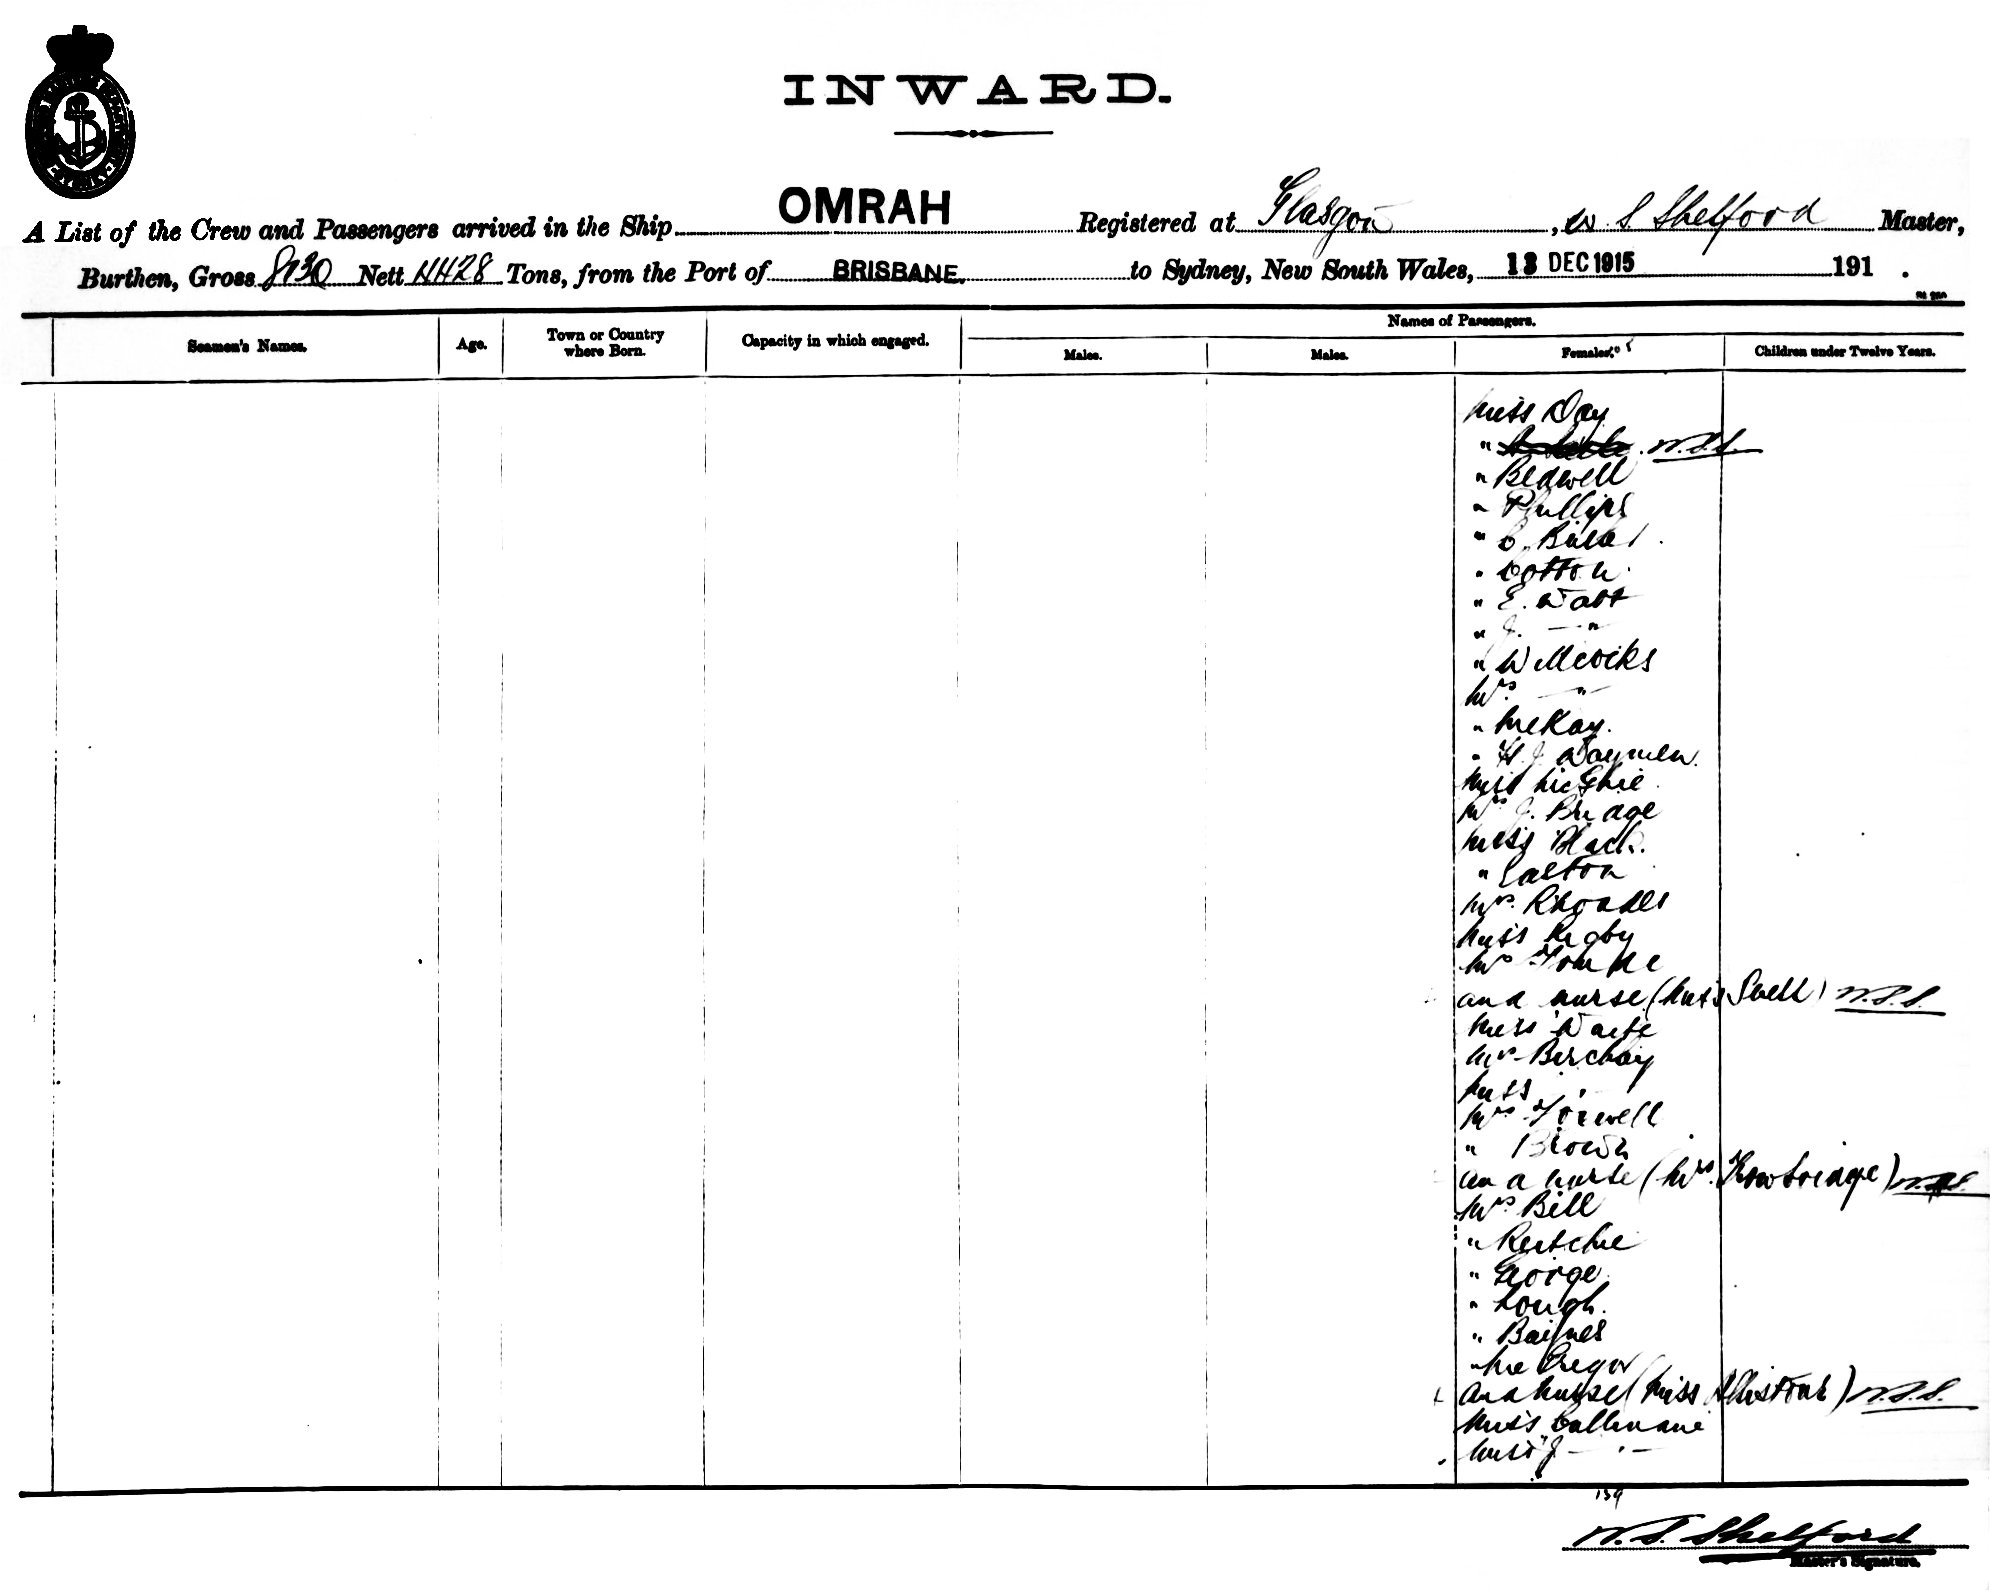 INWARD.
A List of the Crew and Passengers arrived in the Ship OMRAH Registered at Glasgow, W. S. Shelford Master,
Burthen, Gross 8130 Nett 4428 Tons, from the Port of BRISBANE. to Sydney, New South Wales, 13 DEC 1915 191 .
Seamen's Names. Age. Town or Country where Born. Capacity in which engaged. Names of Passengers.
Males. Males. Females. Children under Twelve Years.
Miss Day
" W.S.S.
" Bedwell
" Phillips
" Cotton
" E. Watt
" J. — " —
" Willcocks
Mrs. — " —
" McKay.
" H. J. Daymen.
Miss McGhie
Mrs J. Bridge
Miss Black.
" Easton
Mrs. Rhoades
Miss Rigby
Mrs
and nurse (Miss Snell) W.S.S.
Miss Waite
Mrs Birchby
Miss "
Mrs Forwell
" Brown
and nurse (Mrs. Trowbridge) W.S.S.
Mrs Bell
" Ritchie
" George
" Lough.
" Baines
" McGregor
and nurse (Miss Allistone) W.S.S.
Miss Cullinane
Miss J — " —
139
W. S. Shelford
Master's Signature.